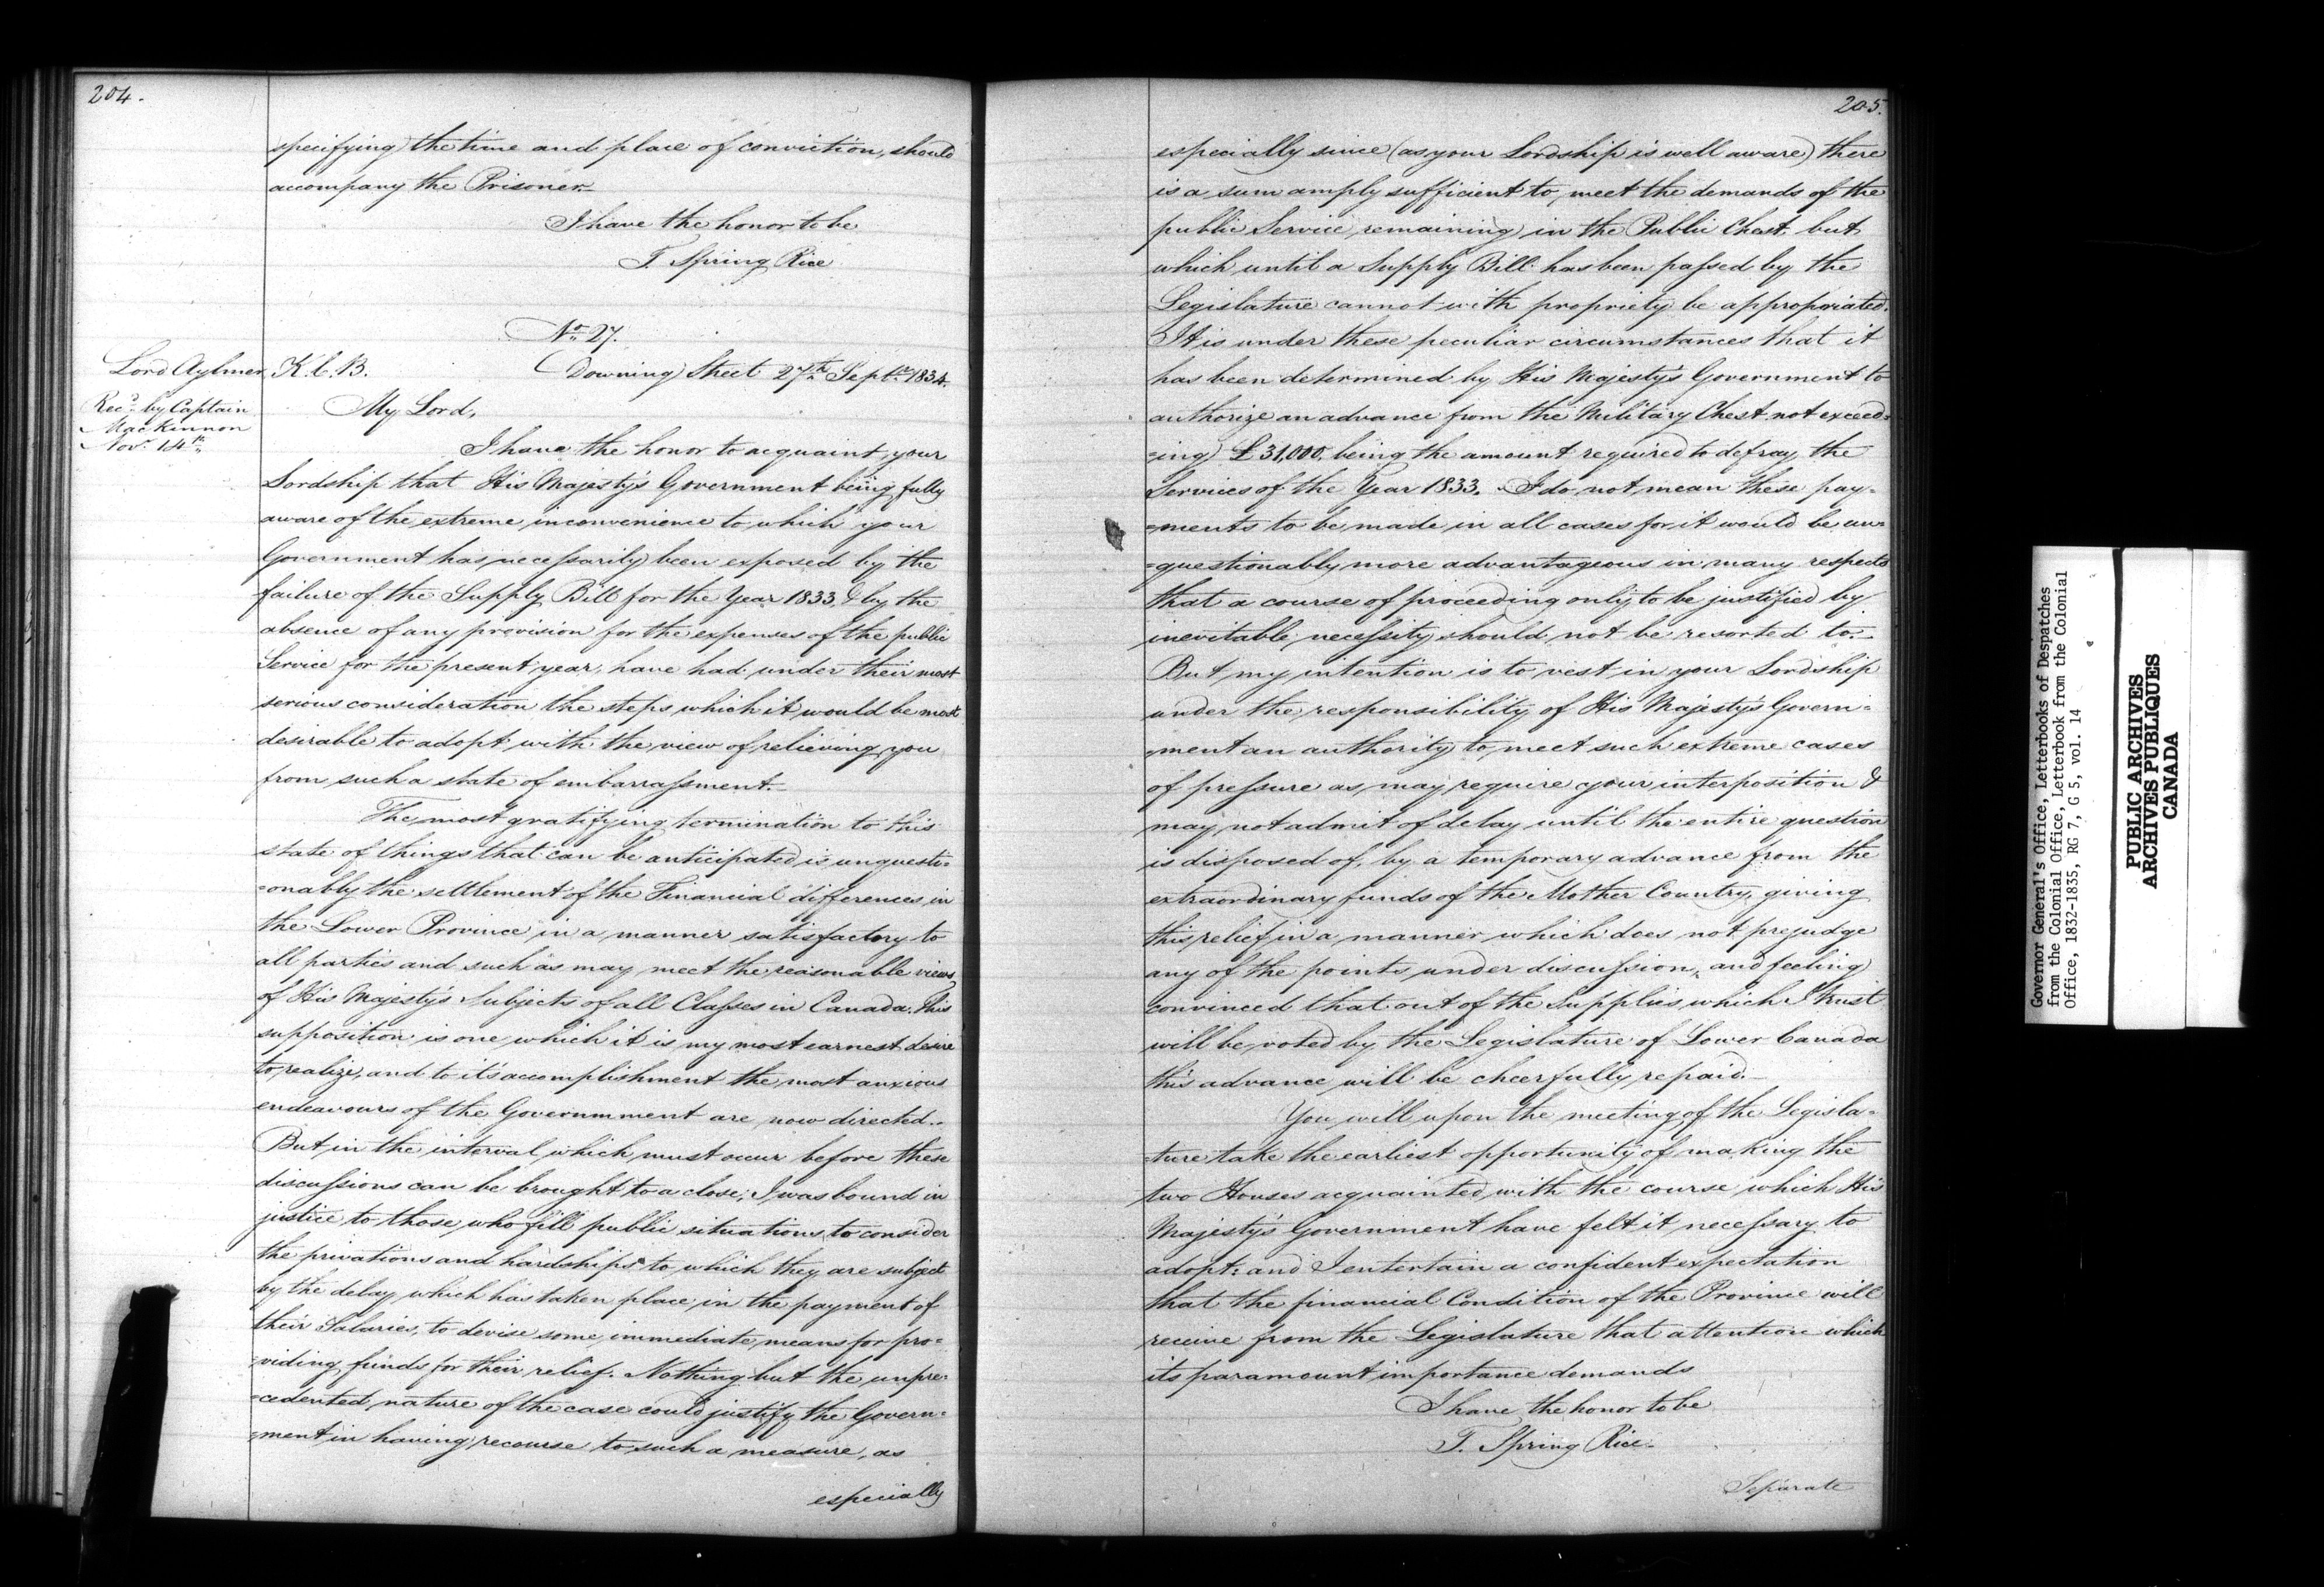 204.
specifying the time and place of conviction, should
accompany the Prisoner.
I have the honor to be
T. Spring Rice
No 27.
Lord Aylmer, K.C.B. Downing Street 27th Septr 1834.
Recd by Captain
MacKinnon
Novr 14th
My Lord,
I have the honor to acquaint your
Lordship that His Majesty's Government being fully
aware of the extreme inconvenience to which your
Government has necessarily been exposed by the
failure of the Supply Bill for the Year 1833, & by the
absence of any provision for the expenses of the public
Service for the present year, have had under their most
serious consideration the steps which it would be most
desirable to adopt with the view of relieving you
from such a state of embarrassment.
The most gratifying termination to this
state of things that can be anticipated is unquesti-
=onably the settlement of the Financial differences in
the Lower Province in a manner satisfactory to
all parties and such as may meet the reasonable views
of His Majesty's Subjects of all Classes in Canada. This
supposition is one which it is my most earnest desire
to realize, and to it's accomplishment the most anxious
endeavours of the Governmment are now directed.
But in the interval which must occur before these
discussions can be brought to a close; I was bound in
justice to those who fill public situations to consider
the privations and hardships to which they are subject
by the delay which has taken place in the payment of
their Salaries, to devise some immediate means for pro=
=viding funds for their relief. Nothing but the unpre=
=cedented nature of the case could justify the Govern=
=ment in having recourse to such a measure, as
especially
205.
especially since (as your Lordship is well aware) there
is a sum amply sufficient to meet the demands of the
public Service remaining in the Public Chest but
which until a Supply Bill has been passed by the
Legislature cannot with propriety be appropriated.
It is under these peculiar circumstances that it
has been determined by His Majesty's Government to
authorize an advance from the Military Chest not exceed=
=ing £31,000, being the amount required to defray the
Services of the Year 1833. I do not mean these pay=
=ments to be made in all cases for it would be un=
=questionably more advantageous in many respects
that a course of proceeding only to be justified by
inevitable necessity should not be resorted to.
But my intention is to vest in your Lordship
under the responsibility of His Majesty's Govern=
=ment an authority to meet such extreme cases
of pressure as may require your interposition &
may not admit of delay until the entire question
is disposed of, by a temporary advance from the
extraordinary funds of the Mother Country, giving
this relief in a manner which does not prejudge
any of the points under discussion, and feeling
convinced that out of the Supplies which I trust
will be voted by the Legislature of Lower Canada
this advance will be cheerfully repaid.
You will upon the meeting of the Legisla=
=ture take the earliest opportunity of making the
two Houses acquainted with the course which His
Majesty's Government have felt it necessary to
adopt: and I entertain a confident expectation
that the financial Condition of the Province will
receive from the Legislature that attention which
its paramount importance demands
I have the honor to be
T. Spring Rice.
Separate
Governor General's Office, Letterbooks of Despatches
from the Colonial Office, Letterbook from the Colonial
Office, 1832-1835, RG 7, G 5, vol. 14
PUBLIC ARCHIVES
ARCHIVES PUBLIQUES
CANADA